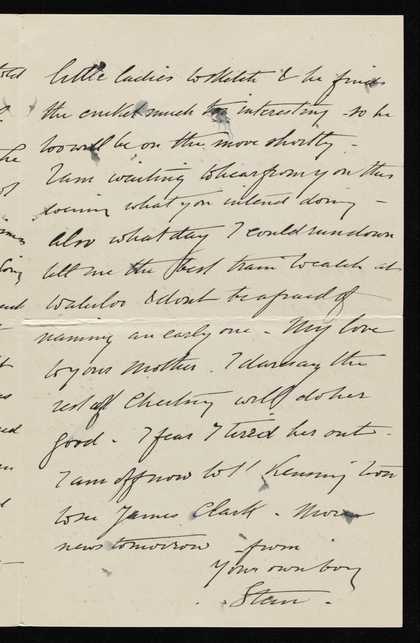 little ladies to sketch & he finds
the cricket much too interesting - so he
too will be on the move shortly -
I am waiting to hear from you this
evening what you intend doing -
also what day I could run down
tell me the best train to catch at
Waterloo & don't be afraid of
naming an early one - My love
to your Mother. I daresay the
rest at Chertsey will do her
good - I fear I tired her out -
I am off now to 11 Kensing'ton
to see James Clark - More
news tomorrow from
Your own boy
Stan -